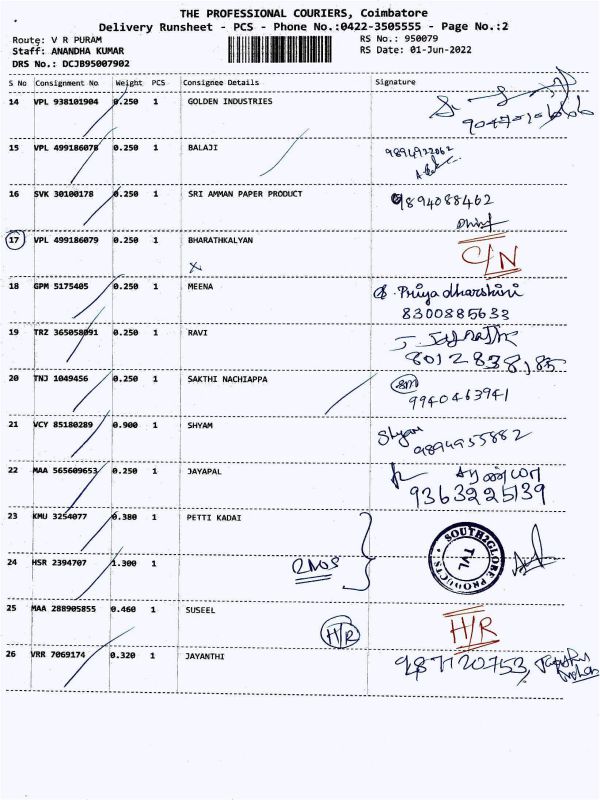 THE PROFESSIONAL COURIERS, Coimbatore
Delivery Runsheet - PCS - Phone No.:0422-3505555 - Page No.:2
Route: V R PURAM RS No.: 950079
Staff: ANANDHA KUMAR RS Date: 01-Jun-2022
DRS No.: DCJB95007902
S No Consignment No Weight PCS Consignee Details Signature
14 VPL 938101904 0.250 1 GOLDEN INDUSTRIES
15 VPL 499186078 0.250 1 BALAJI 9894922062
16 SVK 30100178 0.250 1 SRI AMMAN PAPER PRODUCT 9894088462
17 VPL 499186079 0.250 1 BHARATHKALYAN C/N
X
18 GPM 5175405 0.250 1 MEENA Priya dharshini
8300885633
19 TRZ 365058091 0.250 1 RAVI
8012838185
20 TNJ 1049456 0.250 1 SAKTHI NACHIAPPA SM
9940463941
21 VCY 85180289 0.900 1 SHYAM Shyam
9894955882
22 MAA 565609653 0.250 1 JAYAPAL
9363225139
23 KMU 3254077 0.380 1 PETTI KADAI
SOUTH2GLOBE PRODUCTS
TVL
24 HSR 2394707 1.300 1 2NOS
25 MAA 288905855 0.460 1 SUSEEL H/R
H/R
26 VRR 7069174 0.320 1 JAYANTHI 9871120753,